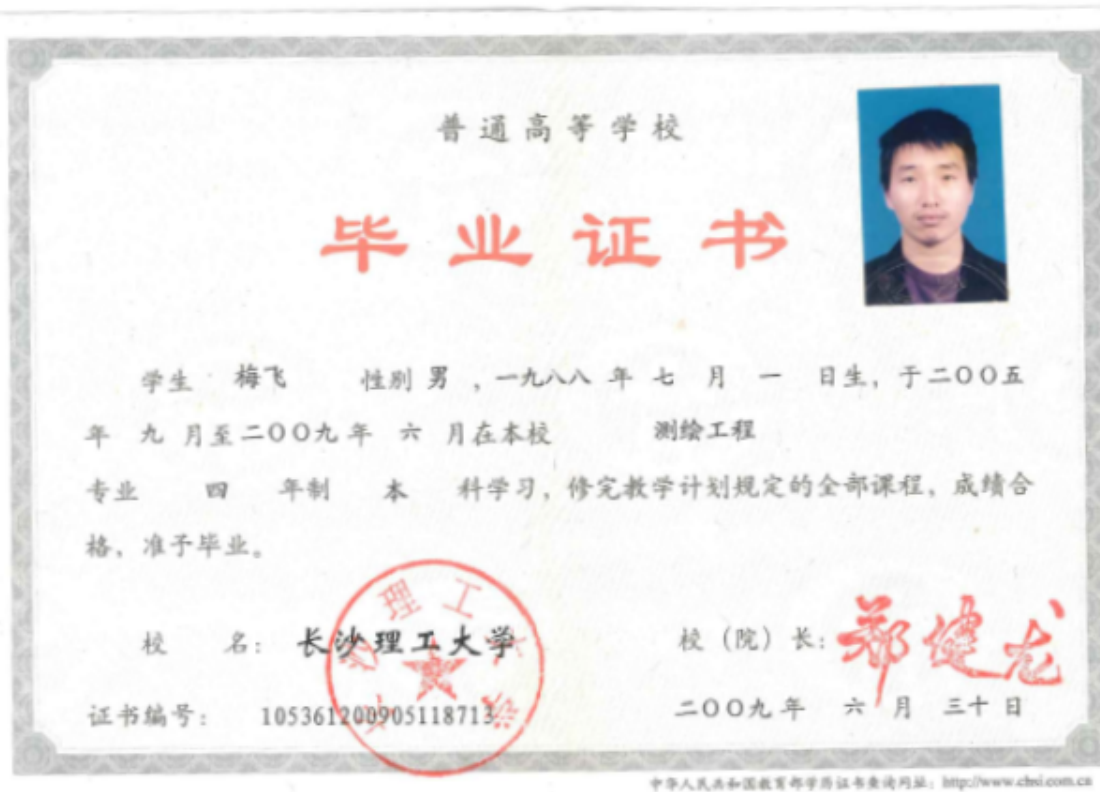 普通高等学校
毕业证书
学生 梅飞 性别 男 ，一九八八 年 七 月 一 日生，于二〇〇五
年 九 月至二〇〇九年 六 月在本校 测绘工程
专业 四 年制 本 科学习，修完教学计划规定的全部课程，成绩合
格，准予毕业。
校 名： 长沙理工大学
校（院）长： 郑健龙
证书编号： 105361200905118713
二〇〇九年 六 月 三十日
长沙理工大学
中华人民共和国教育部学历证书查询网址：http://www.chsi.com.cn